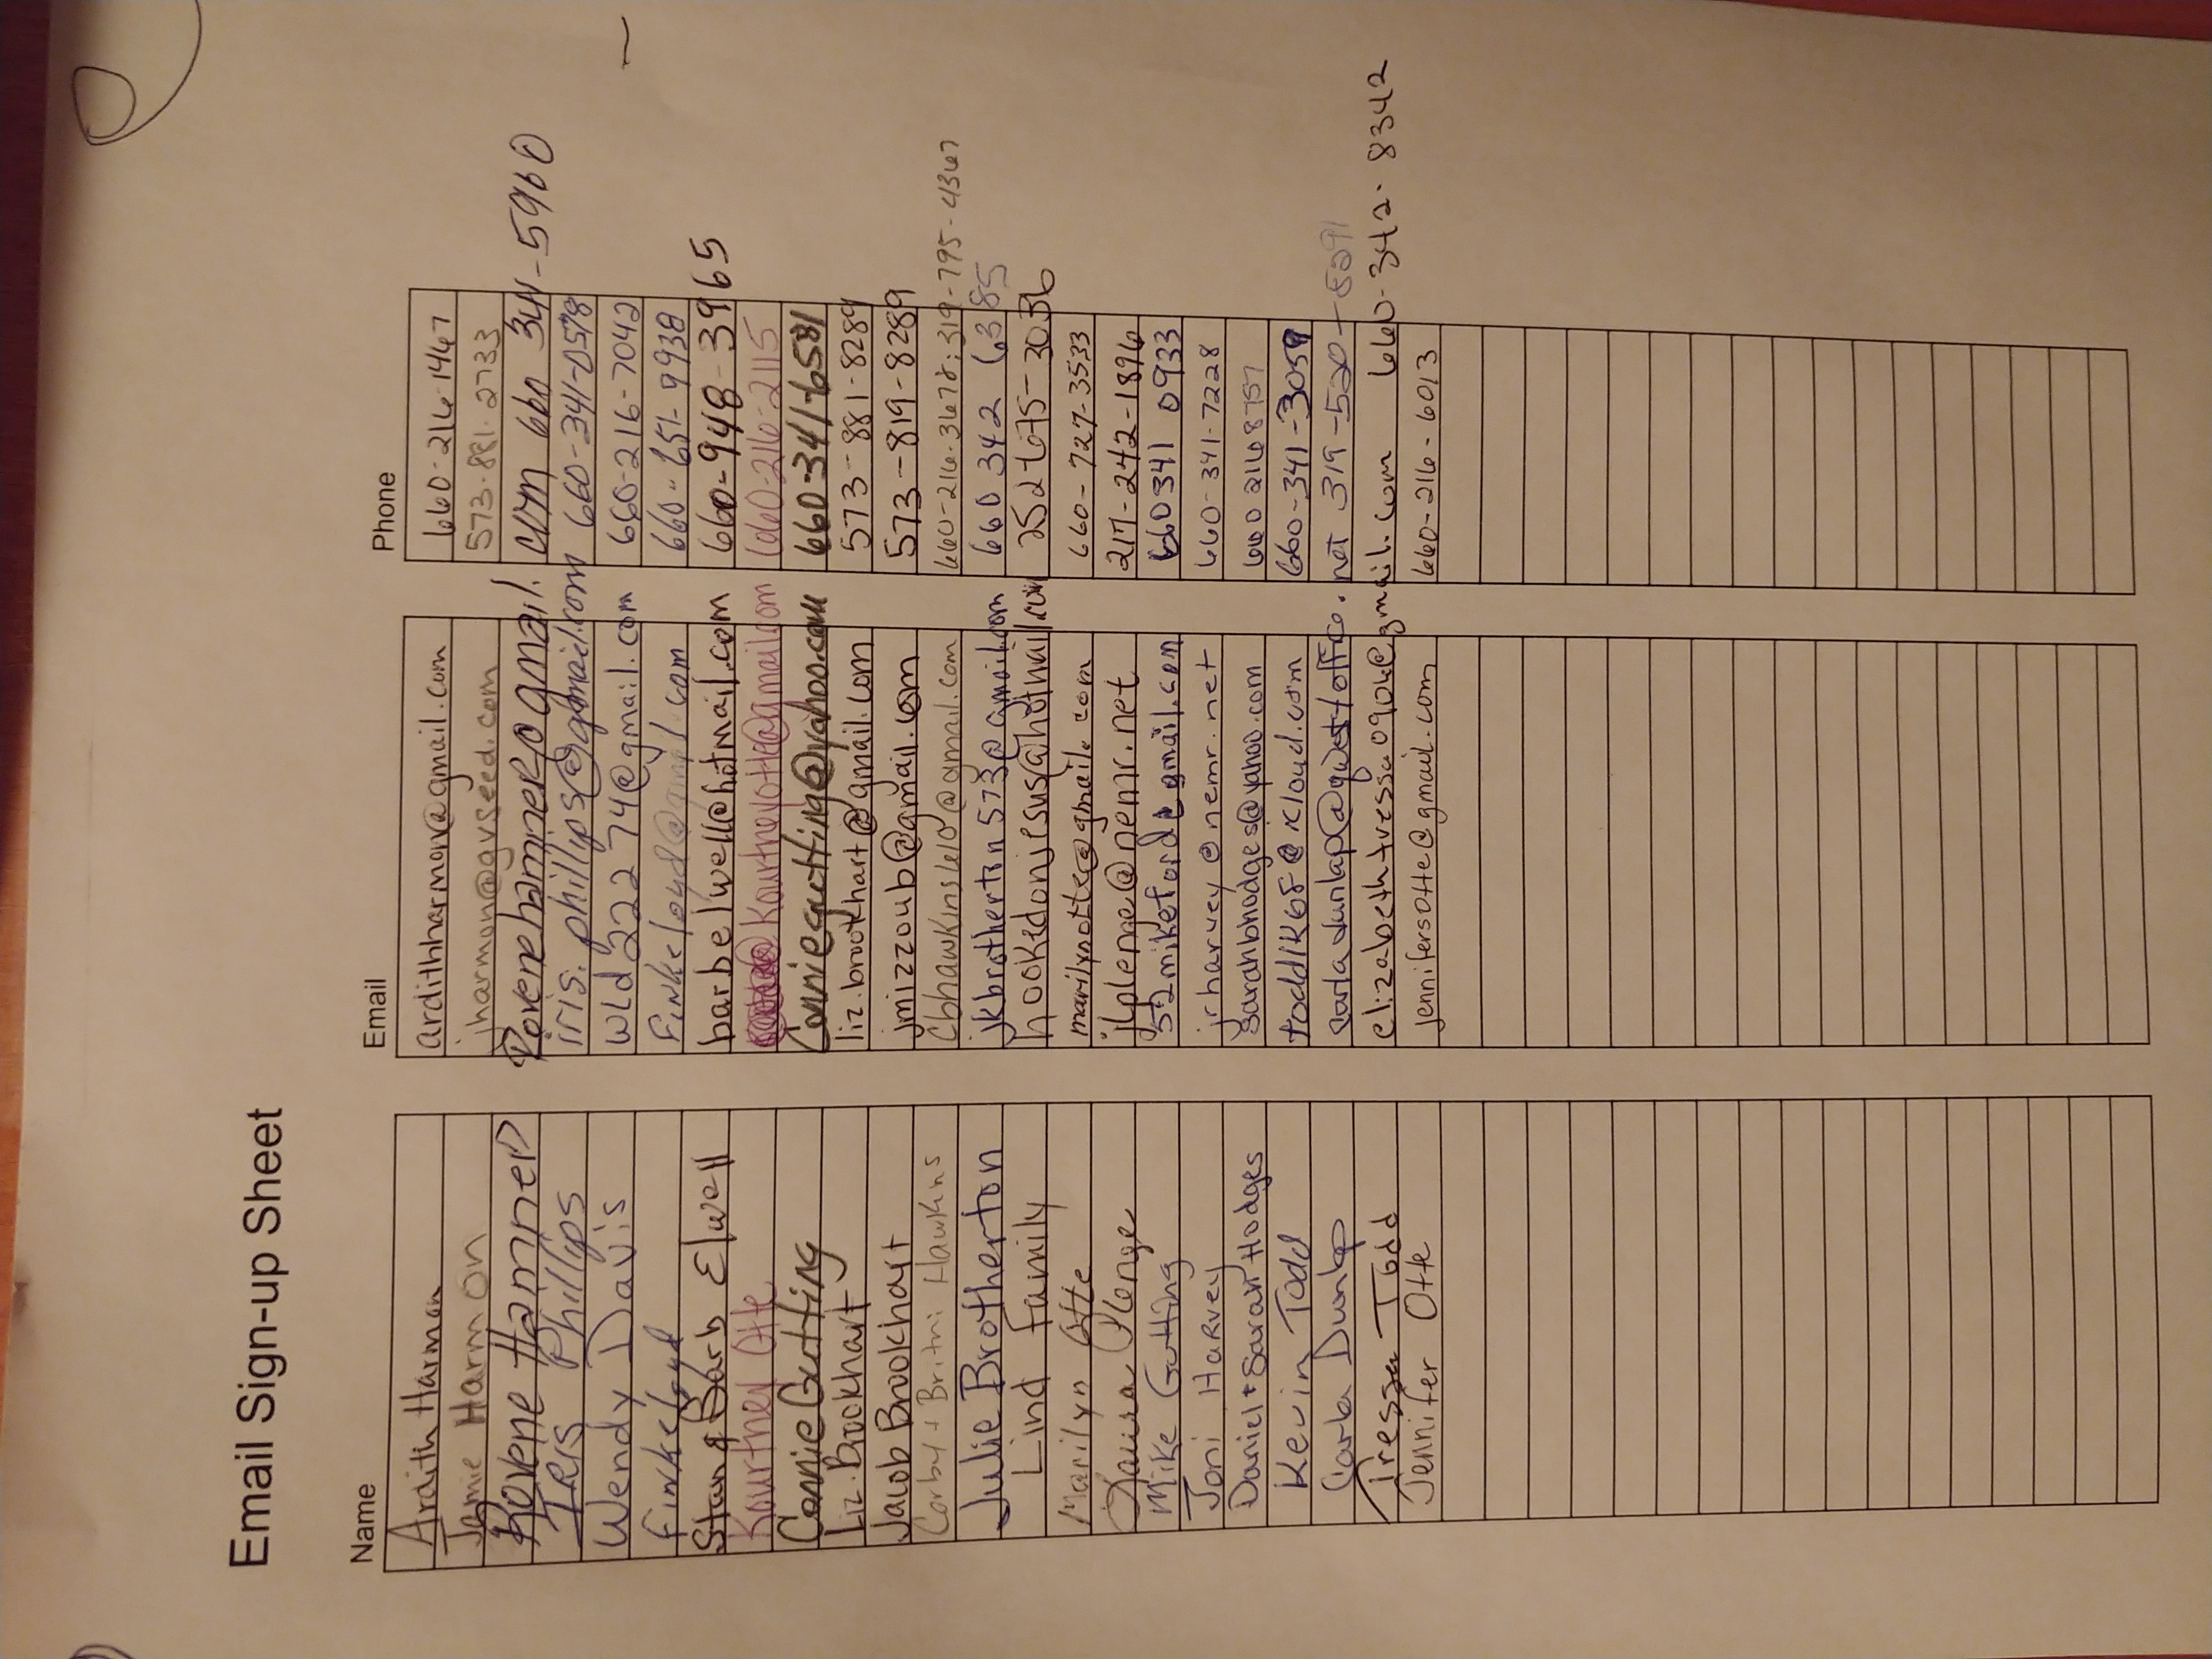 Email Sign-up Sheet
Name Email Phone
Ardith Harmon ardithharmon@gmail.com 660-216-1467
Jamie Harmon jharmon@gvseed.com 573-881-2733
Rovene Hamner rovenehamner@gmail.com 660 341-5960
IRIS Phillips iris.phillips@gmail.com 660-341-0578
Wendy Davis wld22274@gmail.com 660-216-7042
Finkeloyd finkeloyd@gmail.com 660-651-9938
Stan & Barb Elwell barbelwell@hotmail.com 660-948-3965
Kourtney Otte Kourtneyotte@gmail.com 660-216-2115
Connie Gutting Conniegutting@yahoo.com 660-341-6581
Liz Brookhart liz.brookhart@gmail.com 573-881-8289
Jacob Brookhart jmizzoub@gmail.com 573-819-8289
Corby + Britni Hawkins cbhawkins1610@gmail.com 660-216-3678; 319-795-4367
Julie Brotherton jkbrotherton573@gmail.com 660 342 6385
Lind Family hookedonjesus@hotmail.com 252-675-3036
Marilyn Otte marilynotte@gmail.com 660-727-3533
Plenge jlplenge@nemr.net 217-242-1896
Mike Gutting 552mikeford@gmail.com 660 341 0933
Joni Harvey jrharvey@nemr.net 660-341-7228
Daniel + Sarah Hodges sarahbhodges@yahoo.com 660 216 8757
Kevin Todd toddlk68@icloud.com 660-341-3059
Carla Dunlap carladunlap@qwestoffice.net 319-520-5291
Tressa Todd elizabethtressa0904@gmail.com 660-342-8342
Jennifer Otte jennifersotte@gmail.com 660-216-6013